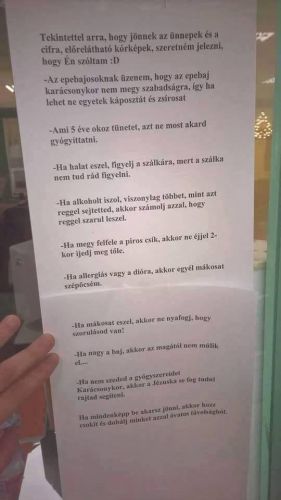 Tekintettel arra, hogy jönnek az ünnepek és a
cifra, előrelátható kórképek, szeretném jelezni,
hogy Én szóltam :D
-Az epebajosoknak üzenem, hogy az epebaj
karácsonykor nem megy szabadságra, így ha
lehet ne egyetek káposztát és zsírosat
-Ami 5 éve okoz tünetet, azt ne most akard
gyógyíttatni.
-Ha halat eszel, figyelj a szálkára, mert a szálka
nem tud rád figyelni.
-Ha alkoholt iszol, viszonylag többet, mint azt
reggel sejtetted, akkor számolj azzal, hogy
reggel szarul leszel.
-Ha megy felfele a piros csík, akkor ne éjjel 2-
kor ijedj meg tőle.
-Ha allergiás vagy a dióra, akkor egyél mákosat
szépöcsém.
-Ha mákosat eszel, akkor ne nyafogj, hogy
szorulásod van!
-Ha nagy a baj, akkor az magától nem múlik
el...
-Ha nem szeded a gyógyszereidet
Karácsonykor, akkor a Jézuska se fog tudni
rajtad segíteni.
Ha mindenképp be akarsz jönni, akkor hozz
csokit és dobálj minket azzal óvatos távolságból.